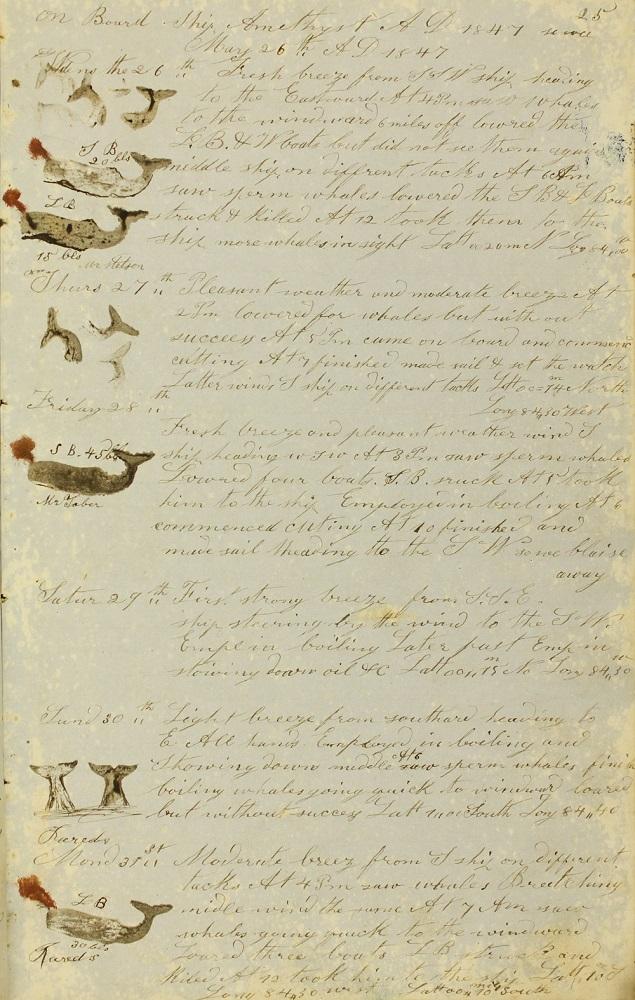 25
on Board Ship Amethyst A D 1847
May 26 th A D 1847
the 26 th Fresh breeze from SSW ship heading
to the Eastward At 4 Pm saw whales
to the windward 6 miles off lowered the
L. B. & W boats but did not see them again
middle ship on different tacks At 6 Am
saw sperm whales lowered the S B & L Boats
struck & Killed At 12 took them to the
ship more whales in sight Latt 20 m N Long 84
S B
20 bls
L B
15 bls
Mr Stetson
Thurs 27 th Pleasant weather and moderate breeze At
2 Pm lowered for whales but with out
success At 5 Pm came on board and commenc
cutting At 7 finished made sail & set the watch
Latter wind S ship on different tacks Latt 00=14 North
Long 84,,50 West
Friday 28 th
Fresh breeze and pleasant weather wind S
ship heading W S W At 3 Pm saw sperm whales
Lowered four boats. S. B. struck At 5 took
him to the ship Employed in boiling At 6
commenced cutting At 10 finished and
made sail heading to the S W
away
S B. 45 bls
Mr Taber
Satur 29 th First strong breeze from S.S.E.
ship steering by the wind to the S.W.
Emp in boiling Later part Emp in
stowing down oil &c Latt 00,,15 No Long 84,,30
Sund 30 th Light breeze from southard heading to
E All hands Employed in boiling and
Showing down middle At 6 saw sperm whales finish
boiling whales going quick to windward loared
but without success Latt South Long 84,,40
Mond 31 st Moderate breeze from S ship on different
tacks At 4 Pm saw whales Breetching
middle wind the same At 7 Am saw
whales going quick to the windward
Loared three boats L B struck and
Kiled At 12 took him to the ship Latt 10 S
Long 84,,30 west Latt 00 10 South
L B
30 bls